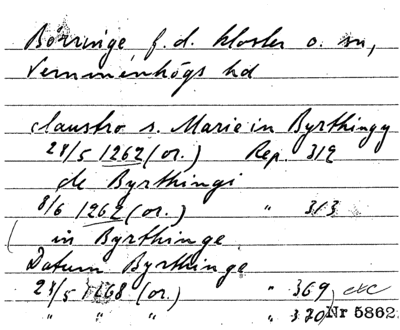 Börringe f.d. kloster o. sn,
Vemmenhögs hd
claustro s. Marie in Byrthingy
28/5 1262 (or.) Rep. 312
de Byrthingi
8/6 1262 (or.) " 313
in Byrthinge
Datum Byrthinge
28/5 1268 (or.) " 369
" " " " 370
Nr 5862